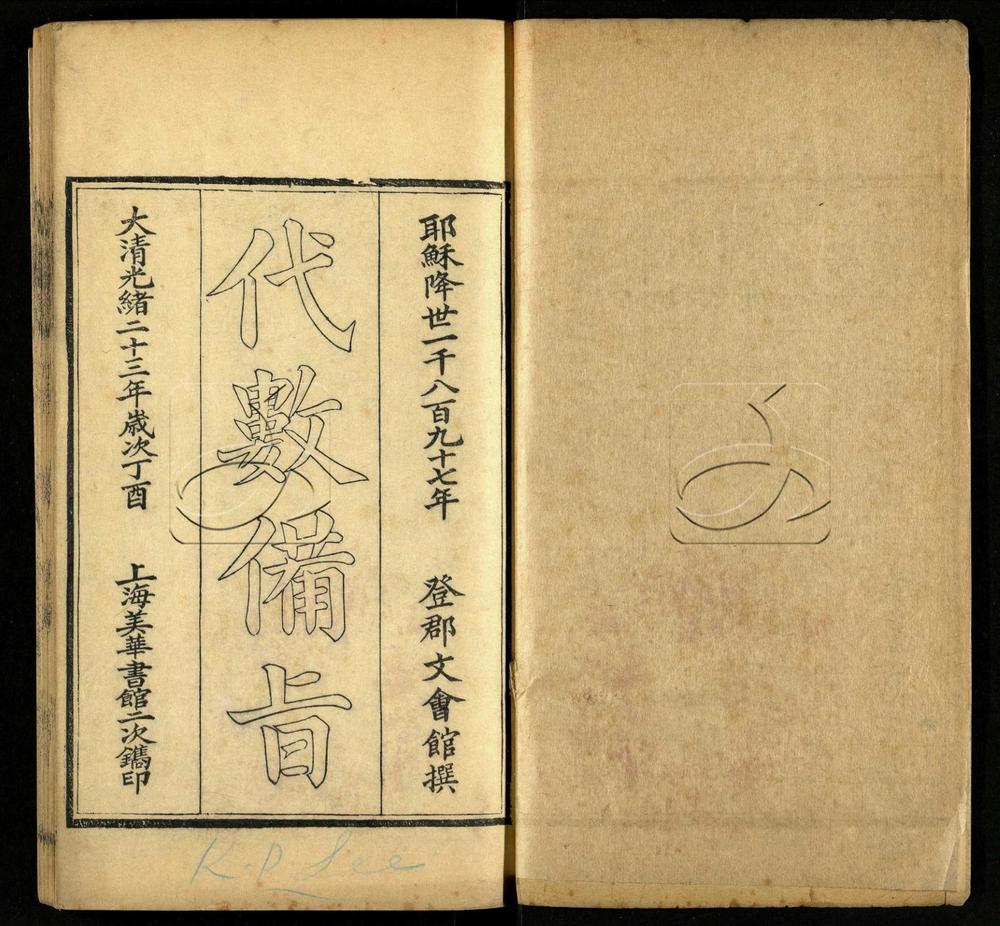 耶穌降世一千八百九十七年 登郡文會館撰
代數備旨
大清光緒二十三年歲次丁酉 上海美華書館二次鐫印
K. P. Lee